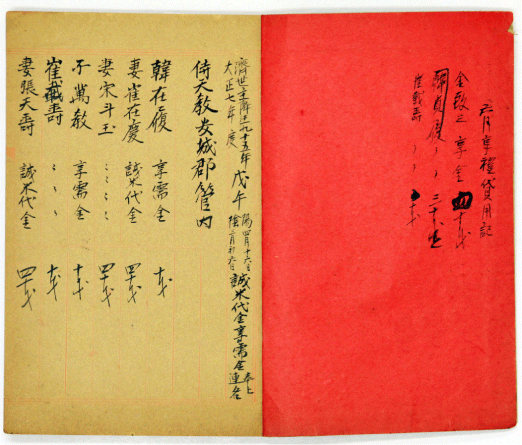 月享禮貸用記
金 享金 四十戔
韓貞履 〃 〃 三十戔
崔戴壽 〃 〃 十戔
濟世主降生九十五年
大正七年度
戊午
陽四月十六日
陰三月初六日
誠米代金享需金
奉上
連名
侍天敎安城郡管内
韓在履 享需金 十戔
妻崔在慶 誠米代金 四十戔
妻宋斗玉 〃〃〃〃 四十戔
子萬敎 享需金 十戔
崔戴壽 〃〃〃 十戔
妻張天壽 誠米代金 四十戔